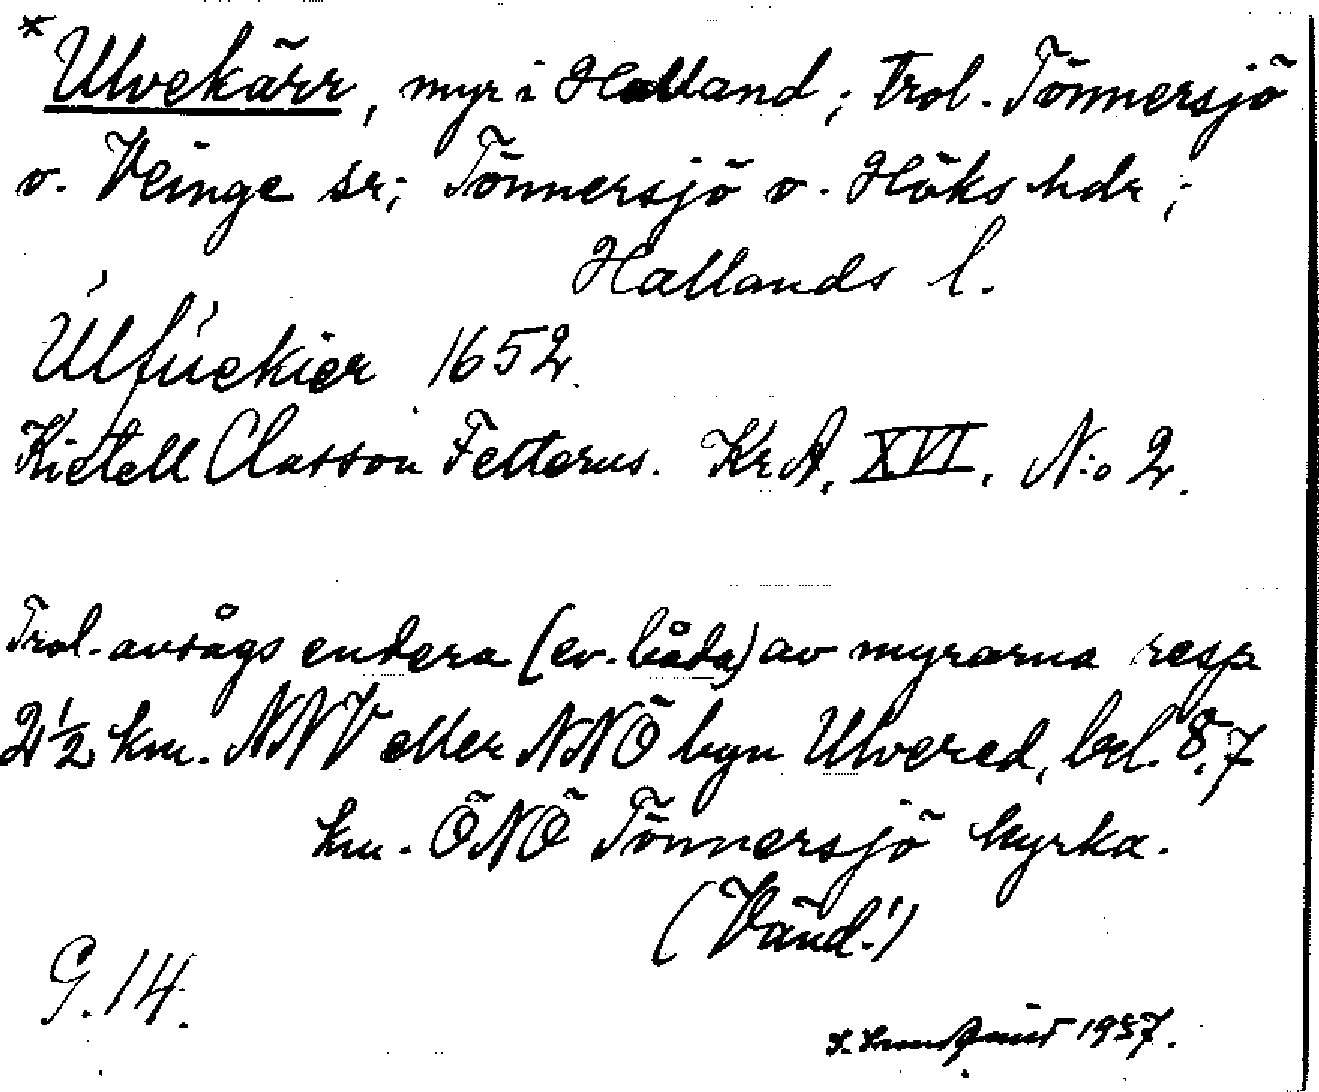 *Ulvekärr, myr i Halland; trol. Tönnersjö
o. Veinge sr; Tönnersjö o. Höks hdr;
Hallands l.
Ulfuekier 1652
Kietell Classon Felterus. KrA. XVI. N:o 2.
Trol. avságs endera (ev. båda) av myrarna resp
2 1/2 km. NNV eller NNÖ byn Ulvered, bel. 8,7
km. ÖNÖ Tönnersjö kyrka.
(Vänd!)
G. 14.
S. Lundquist 1937.